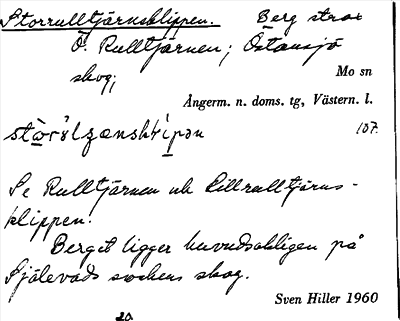 Storrulltjärnsklippen. Berg strax
Ö. Rulltjärnen; Östansjö
skog;
Mo sn
Ångerm. n. doms. tg, Västern. l.
107.
Se Rulltjärnen och Lillrulltjärns-
klippen.
Berget ligger huvudsakligen på
Själevads sockens skog.
Sven Hiller 1960